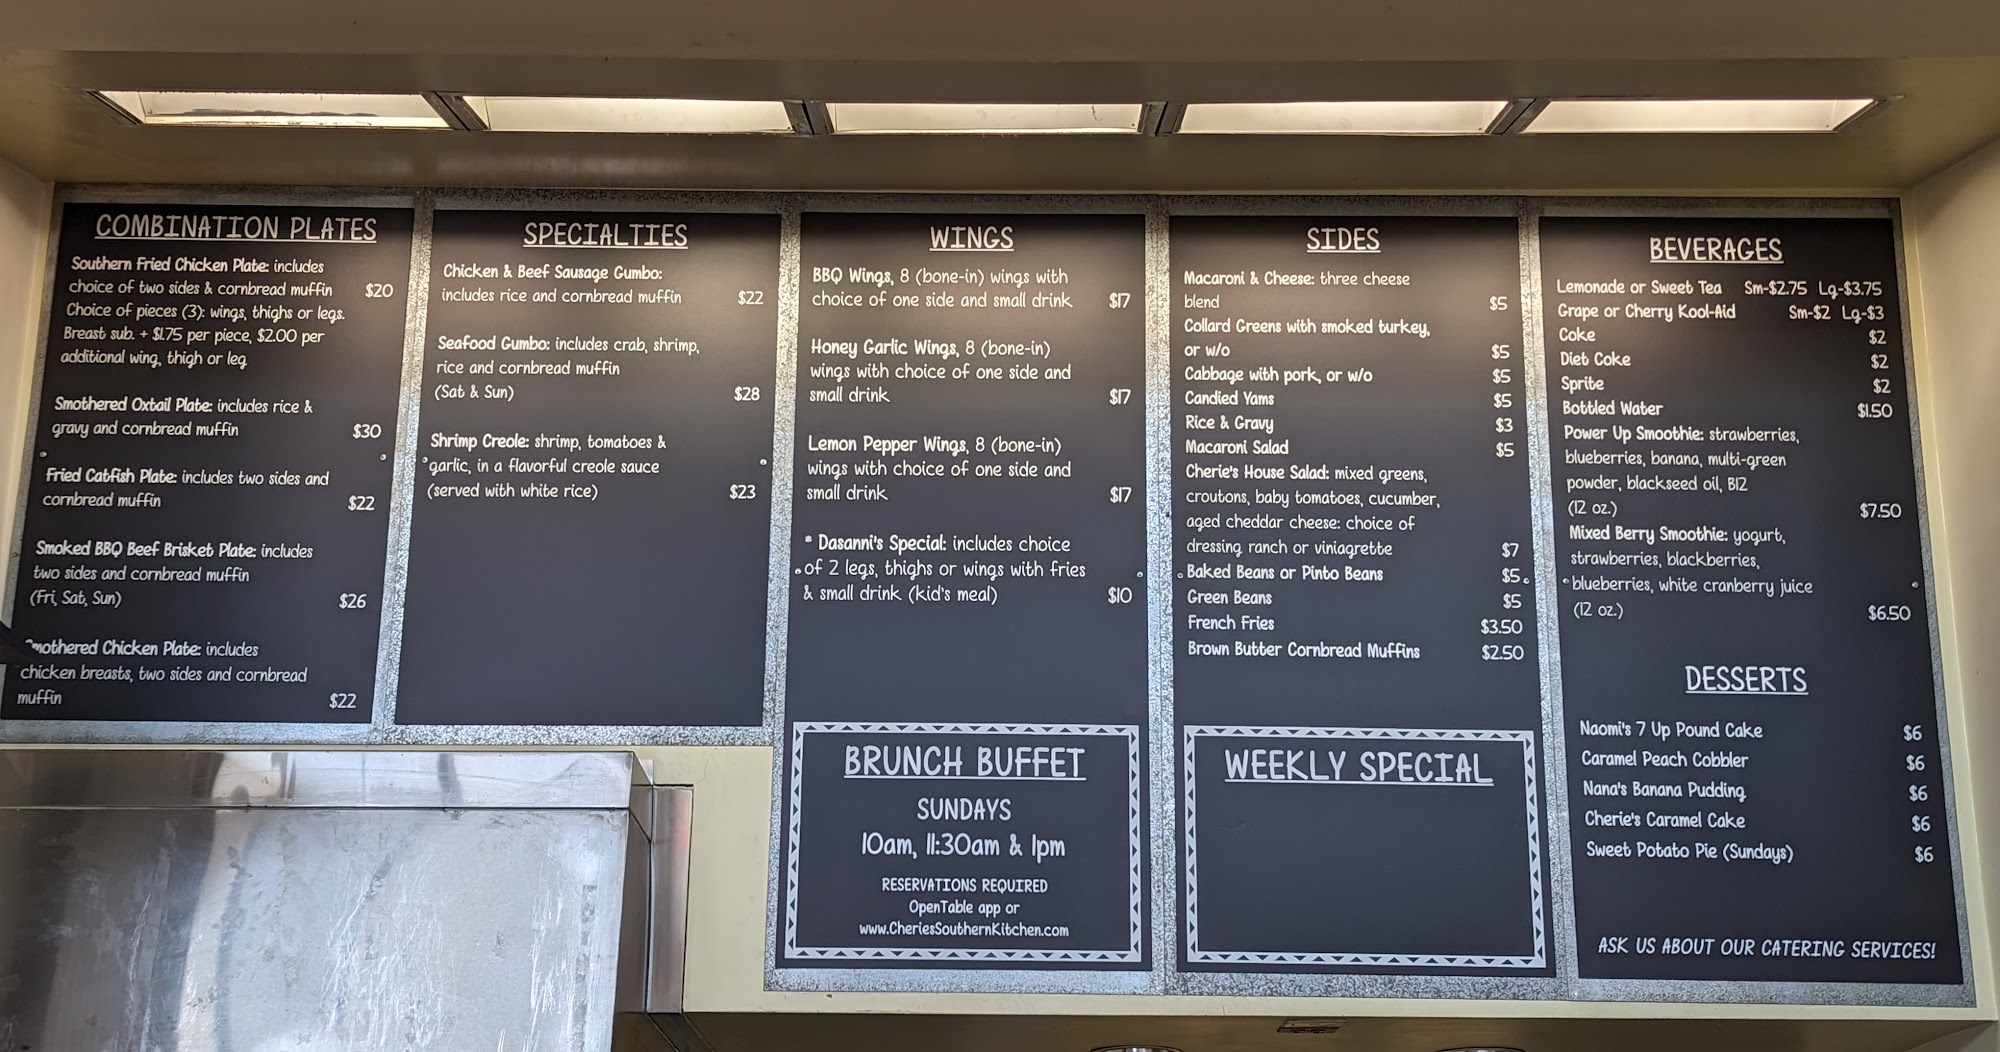 COMBINATION PLATES
Southern Fried Chicken Plate: includes
choice of two sides & cornbread muffin $20
Choice of pieces (3): wings, thighs or legs.
Breast sub. + $1.75 per piece, $2.00 per
additional wing, thigh or leg
Smothered Oxtail Plate: includes rice &
gravy and cornbread muffin $30
Fried Catfish Plate: includes two sides and
cornbread muffin $22
Smoked BBQ Beef Brisket Plate: includes
two sides and cornbread muffin
(Fri, Sat, Sun) $26
Smothered Chicken Plate: includes
chicken breasts, two sides and cornbread
muffin $22
SPECIALTIES
Chicken & Beef Sausage Gumbo:
includes rice and cornbread muffin $22
Seafood Gumbo: includes crab, shrimp,
rice and cornbread muffin
(Sat & Sun) $28
Shrimp Creole: shrimp, tomatoes &
garlic, in a flavorful creole sauce
(served with white rice) $23
WINGS
BBQ Wings, 8 (bone-in) wings with
choice of one side and small drink $17
Honey Garlic Wings, 8 (bone-in)
wings with choice of one side and
small drink $17
Lemon Pepper Wings, 8 (bone-in)
wings with choice of one side and
small drink $17
* Dasanni's Special: includes choice
of 2 legs, thighs or wings with fries
& small drink (kid's meal) $10
BRUNCH BUFFET
SUNDAYS
10am, 11:30am & 1pm
RESERVATIONS REQUIRED
OpenTable app or
www.CheriesSouthernKitchen.com
SIDES
Macaroni & Cheese: three cheese
blend $5
Collard Greens with smoked turkey,
or w/o $5
Cabbage with pork, or w/o $5
Candied Yams $5
Rice & Gravy $3
Macaroni Salad $5
Cherie's House Salad: mixed greens,
croutons, baby tomatoes, cucumber,
aged cheddar cheese: choice of
dressing ranch or viniagrette $7
Baked Beans or Pinto Beans $5
Green Beans $5
French Fries $3.50
Brown Butter Cornbread Muffins $2.50
WEEKLY SPECIAL
BEVERAGES
Lemonade or Sweet Tea Sm-$2.75 Lg-$3.75
Grape or Cherry Kool-Aid Sm-$2 Lg-$3
Coke $2
Diet Coke $2
Sprite $2
Bottled Water $1.50
Power Up Smoothie: strawberries,
blueberries, banana, multi-green
powder, blackseed oil, B12
(12 oz.) $7.50
Mixed Berry Smoothie: yogurt,
strawberries, blackberries,
blueberries, white cranberry juice
(12 oz.) $6.50
DESSERTS
Naomi's 7 Up Pound Cake $6
Caramel Peach Cobbler $6
Nana's Banana Pudding $6
Cherie's Caramel Cake $6
Sweet Potato Pie (Sundays) $6
ASK US ABOUT OUR CATERING SERVICES!